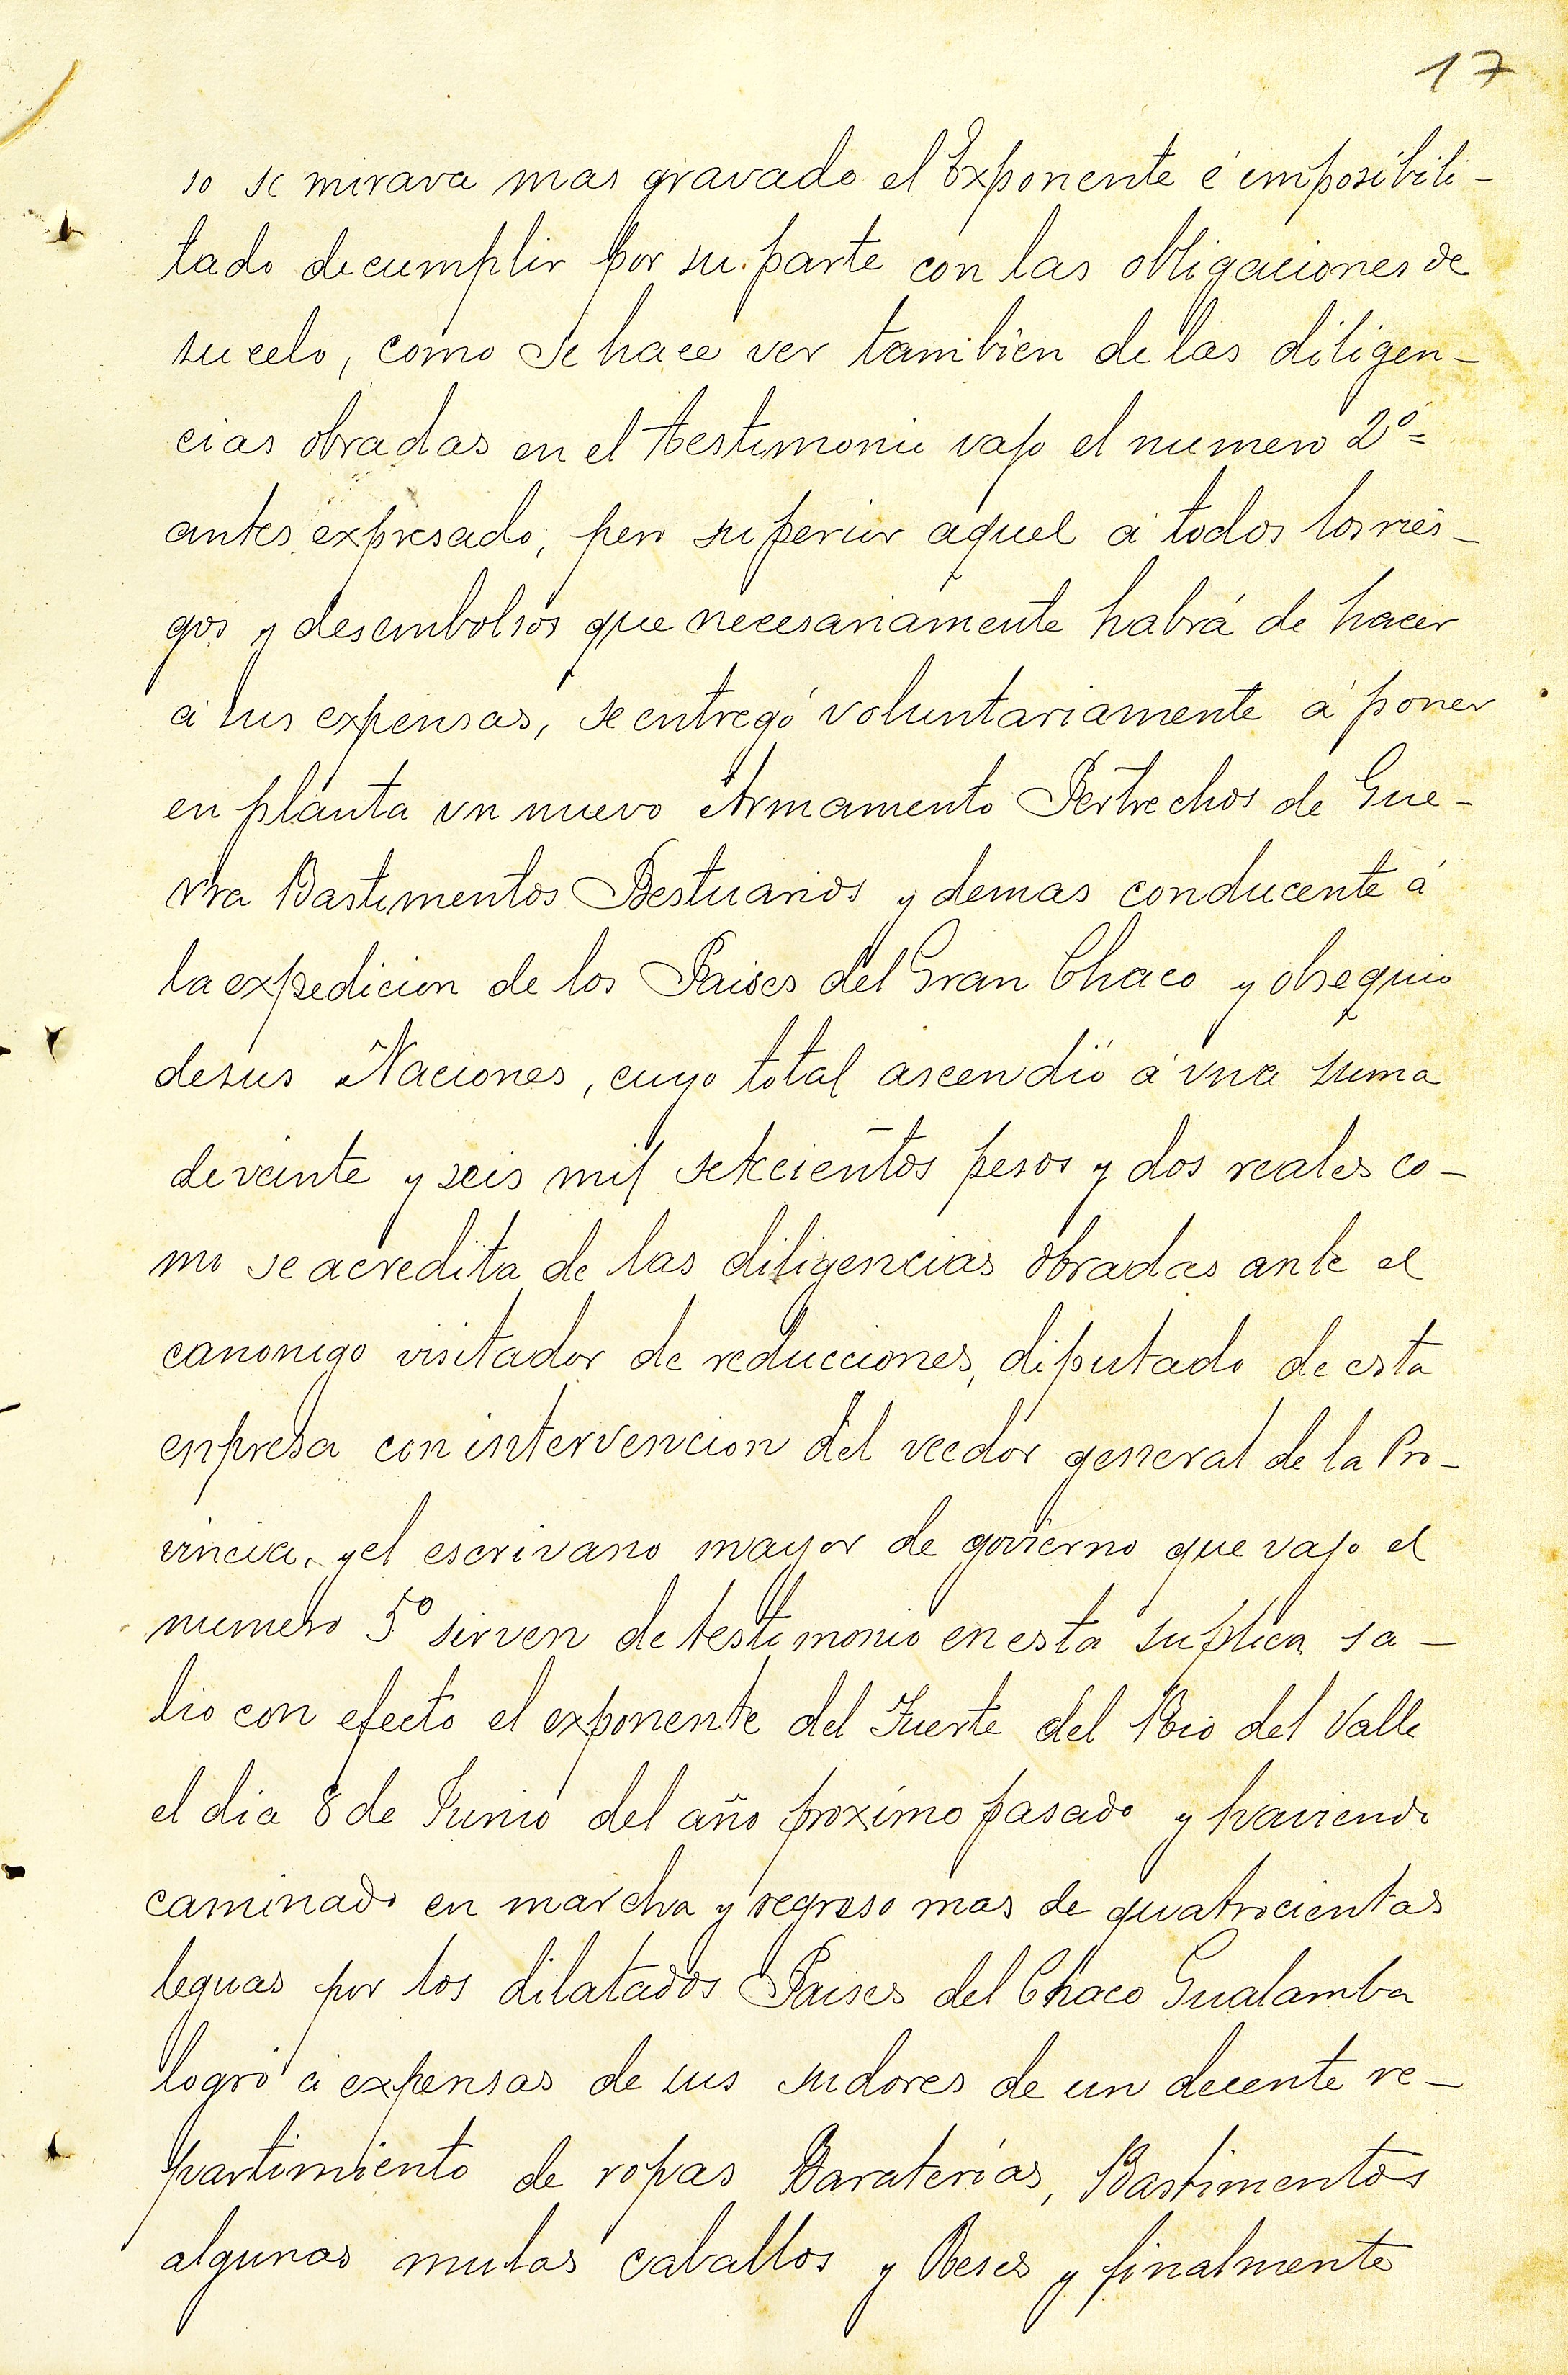 17
so se mirava mas gravado el Exponente é imposibili-
tado decumplir por su parte con las obligaciones de
sucelo, como se hace ver tambien de las diligen-
cias obradas en el testimonio vajo el numero 2º=
antes expresado, pero superior aquel á todos los ries-
gos y desembolsos que necesariamente habrá de hacer
á sus expensas, se entregó voluntariamente á poner
en planta vn nuevo Armamento Pertrechos de Gue-
rra Bastimentos Bestuarios y demas conducente á
la expedicion de los Paises del Gran Chaco y obsequio
desus Naciones, cuyo total ascendió á vna suma
de veinte y seis mil setecientos pesos y dos reales co-
mo se acredita de las diligencias obradas ante el
canonigo visitador de reducciones, diputado de esta
enpresa con intervencion del veedor general de la Pro-
vincia, y el escrivano mayor de govierno que vajo el
numero 5º sirven de testimonio en esta suplica sa-
lio con efecto el exponente del Fuerte del Rio del Valle
el dia 8 de Junio del año proximo pasado y haviendo
caminado en marcha y regreso mas de quatrocientas
leguas por los dilatados Paises del Chaco Gualamba
logró á expensas de sus sudores de un decente re-
partimiento de ropas Baraterias, Bastimentos
algunas mulas caballos y Reses y finalmente